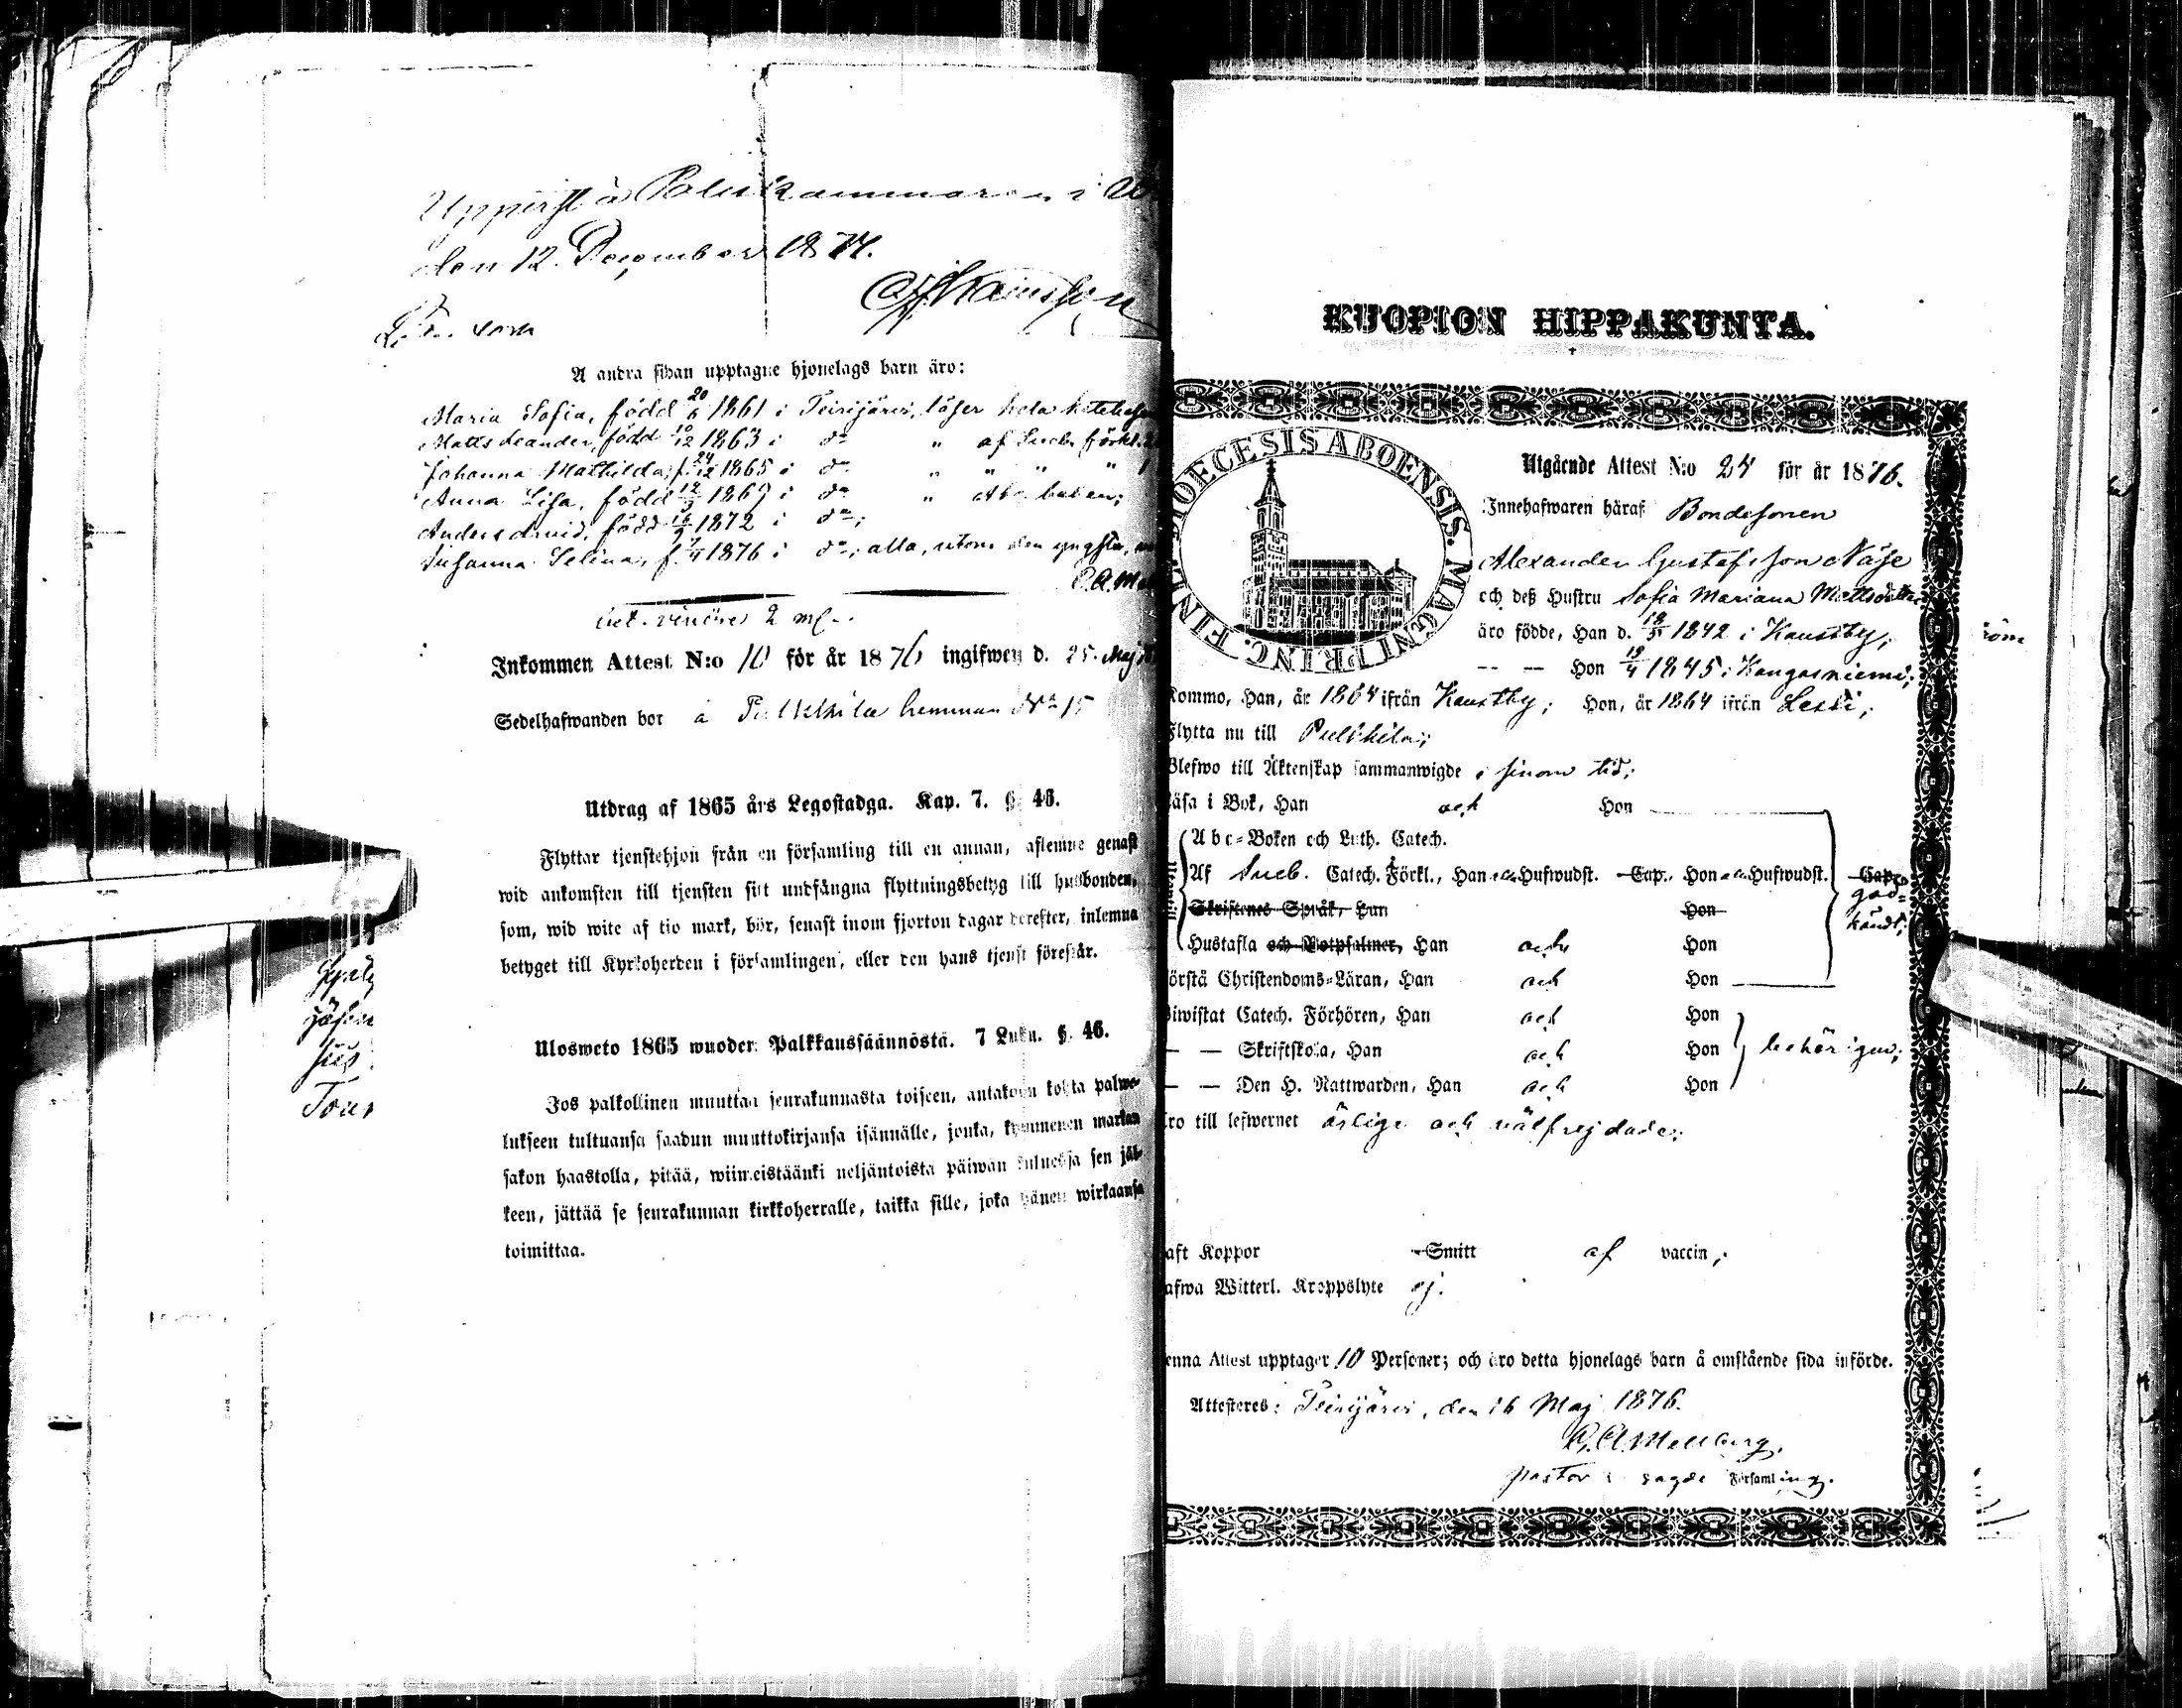 Uppvist å Poliskammaren i
den 12 December 1874.
A andra sidan upptagne hjonelags barn äro:
Maria Sofia, född 20/6 1861 i Teirijärvi, läser hela
Matts Leander, född 10/12 1863 i do " af Sveb. förkl.
Johanna Mathilda, f. 24/12 1865 i do " " " "
Anna Lisa, född 12/3 1869 i do " Abc boken;
Anders Arvid, född 16/9 1872 i do;
Susanna Selina, f. 7/4 1876 i do; alla, utom den yngsta,
Inkommen Attest N:o 10 för år 1876 ingifwen d. 25. Maj
Sedelhafwanden bor å Pulkkila hemman No 15
Utdrag af 1865 års Legostadga. Kap. 7. §. 46.
Flyttar tjenstehjon från en församling till en annan, aflemne genast
wid ankomsten till tjensten sitt undfångna flyttningsbetyg till husbonden,
som, wid wite af tio mark, bör, senast inom fjorton dagar derefter, inlemna
betyget till Kyrkoherden i församlingen, eller den hans tjenst förestår.
Ulosweto 1865 wuoden Palkkaussäännöstä. 7 Luku. §. 46.
Jos palkollinen muuttaa seurakunnasta toiseen, antakoon kohta palwe-
lukseen tultuansa saadun muuttokirjansa isännälle, jonka, kymmenen markan
sakon haastolla, pitää, wiimeistäänki neljäntoista päiwän kuluessa sen jäl-
keen, jättää se seurakunnan kirkkoherralle, taikka sille, joka hänen wirkaansa
toimittaa.
KUOPION HIPPAKUNTA.
DIOECESIS ABOENSIS. MAGNI PRINC. FINL.
Utgående Attest N:o 24 för år 1876.
Innehafwaren häraf Bondesonen
Alexander Gustafsson Näse
och deß Hustru Sofia Mariana Mattsdotter
äro födde, Han d. 1842 i Kaustby;
-- — Hon 19/4 1845 i Kangasniemi;
Kommo, Han, år 1864 ifrån Kaustby; Hon, år 1864 ifrån Lesti;
Flytta nu till Pulkkila;
Blefwo till Äktenskap sammanwigde i sinom tid;
Läsa i Bok, Han och Hon
Abc-Boken och Luth. Catech.
Af Sveb. Catech. Förkl., Han och Hufwudst. Cap., Hon och Hufwudst. Cap. god-
kändt;
Skriftenes Språk, Han Hon
Hustafla och Botpsalmer, Han och Hon
Förstå Christendoms-Läran, Han och Hon
Biwistat Catech. Förhören, Han och Hon
— — Skriftskola, Han och Hon behörigen;
— — Den H. Nattwarden, Han och Hon
Äro till lefwernet ärlige och välfrejdade;
Haft Koppor Smitt af vaccin;
Hafwa Witterl. Kroppslyte ej.
Denna Attest upptager 10 Personer; och äro detta hjonelags barn å omstående sida införde.
Attesteres: Teirijärvi, den 16 Maj 1876.
pastor i sagde Församling.